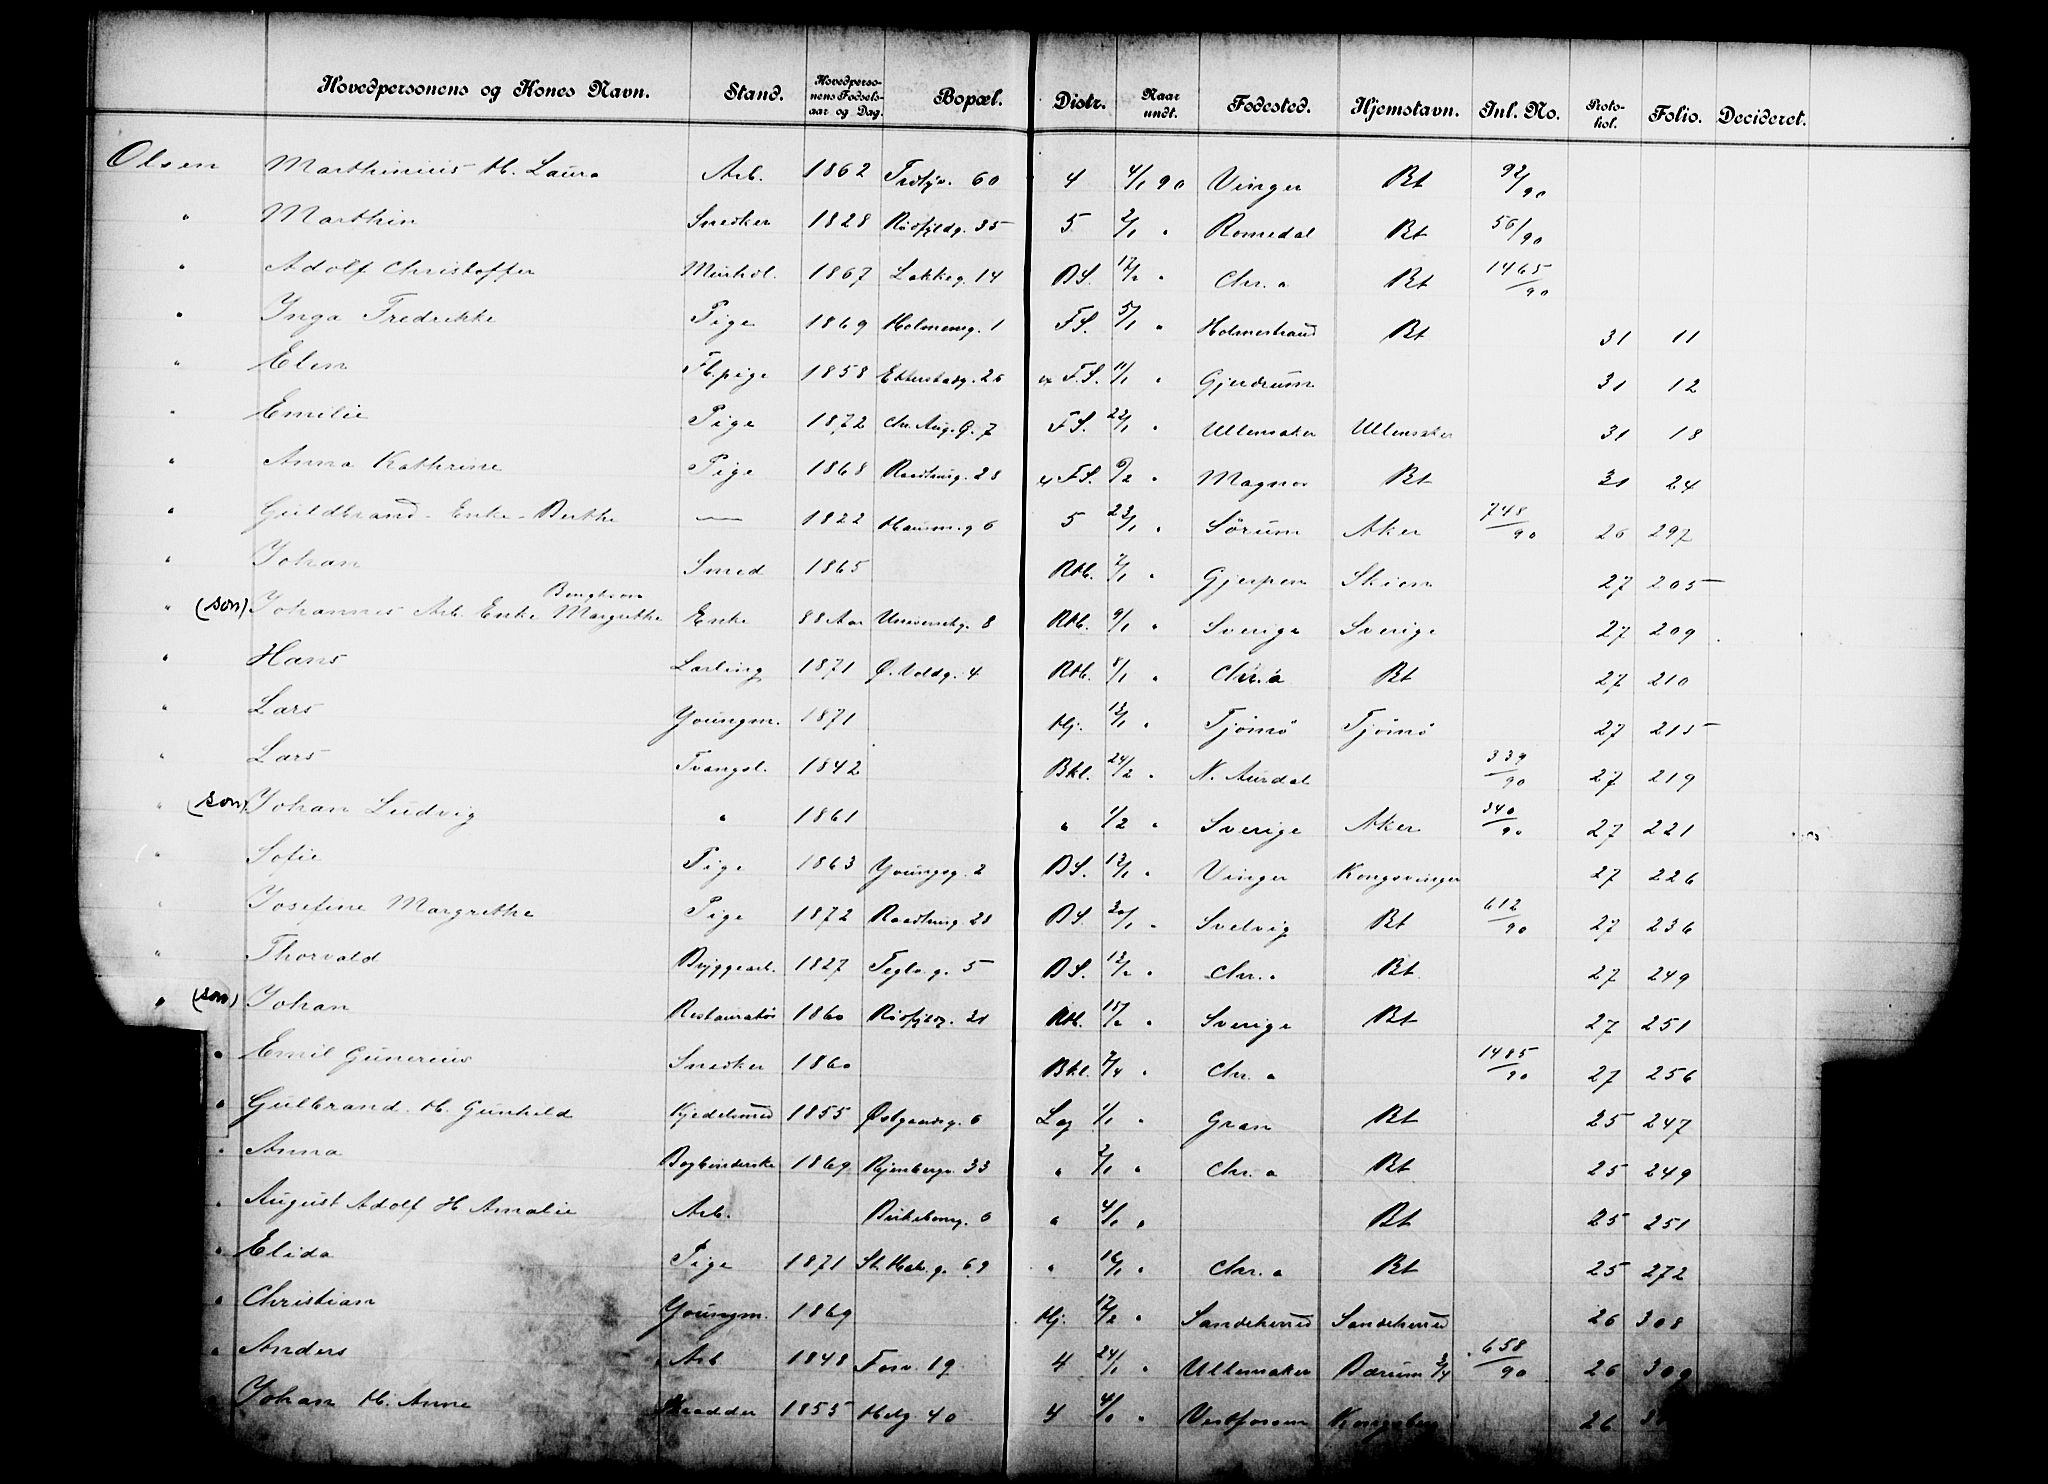 Hovedpersonens og Kones Navn. Stand. Hovedpersonens Fødselsaar og Dag. Bopæl. Distr. Naar undt. Fødested. Hjemstavn. Inl. No. Protokol. Folio. Decideret.
Olsen Marthinius H. Laura Arb. 1862 60 4 4/1 90 Vinger Bt 92/90
" Marthin Snedker 1828 Rosfjeldg. 35 5 2/1 " Romedal Bt 56/90
" Adolf Christoffer Murhdl. 1867 Lakkeg. 14 BS. 17/2 " Chr.a Bt 1465/90
" Inga Fredrikke Pige 1869 Holmensg. 1 FS. 5/1 " Holmestrand Bt 31 11
" Elen Fb.pige 1858 Etterstadg. 26 F.S. 11/1 " Gjerdrum 31 12
" Emilie Pige 1872 Chr. Aug. G. 7 FS. 22/1 " Ullensaker Ullensaker 31 18
" Anna Kathrine Pige 1868 Raadhusg. 28 FS. 6/2 " Magnor Bt 31 24
" Guldbrand - Enke - Berthe — 1822 Hausm.g 6 5 23/1 " Sörum Aker 748/90 26 297
" Johan Smed 1865 Rth. 7/1 " Gjerpen Skien 27 205
" (son) Johannes Arb. Enke Bengtson Margrethe Enke 88 Aar Universitg. 8 Rth. 9/1 " Sverige Sverige 27 209
" Hans Lærling 1871 Ø. Voldg. 4 Rth. 8/1 " Chr.a Bt 27 210
" Lars Youngm. 1871 Hj. 13/1 " Tjömö Tjömö 27 215
" Lars Tvangsl. 1842 Bkl. 24/2 " N. Aurdal 339/90 27 219
" (son) Johan Ludvig " 1861 " 1/2 " Sverige Aker 340/90 27 221
" Sofie Pige 1863 Youngsg. 2 BS. 13/1 " Vinger Kongsvinger 27 226
" Josefine Margrethe Pige 1872 Raadhusg. 28 BS. 20/1 " Svelvig Bt 612/90 27 236
" Thorvald Bryggearb. 1827 Teglv.g. 5 BS. 13/2 " Chr.a Bt 27 249
" (son) Johan Restauratør 1860 Rosfjeldg. 21 Rth. 15/2 " Sverige Bt 27 251
" Emil Gunerius Snedker 1860 Bkl. 7/4 " Chr.a 1485/90 27 256
" Gulbrand. H. Gunhild Kjedelsmed 1855 Østgaardsg. 6 Log 1/1 " Gran Bt 25 247
" Anna Bogbinderske 1869 33 " 2/1 " Chr.a Bt 25 249
" August Adolf H Amalie Arb. Birkebeng. 6 " 4/1 " Bt 25 251
" Elida Pige 1871 St. Halv. g. 69 " 16/1 " Chr.a Bt 25 272
" Christian Youngm. 1869 Hj. 17/2 " Sandeherred Sandeherred 26 308
" Anders Arb 1848 Fosv. 19 4 24/1 " Ullensaker Bærum 3/4 658/90 26 309
Johan H. Anne Skrædder 1855 Helg 40 4 4/1 " Vestfossen Kongsberg 26